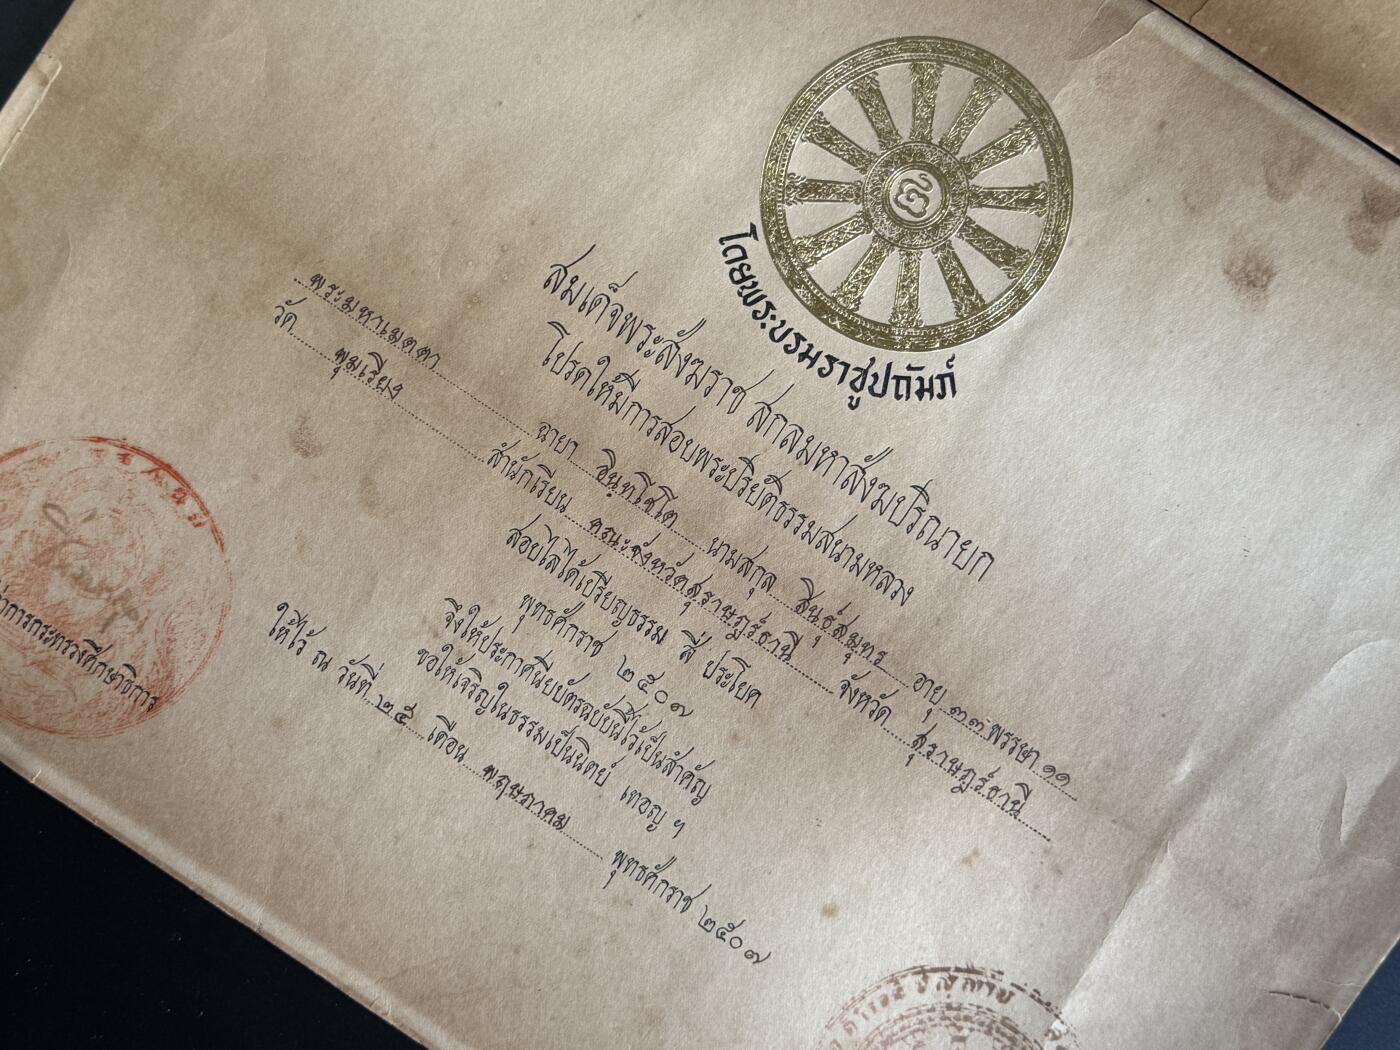 โดยพระบรมราชูปถัมภ์
สมเด็จพระสังฆราช สกลมหาสังฆปริณายก
โปรดให้มีการสอบพระปริยัติธรรมสนามหลวง
พระมหาเมตตา ฉายา ชินฺทโชโต นามสกุล สินธุ์สมุทร อายุ ๓๓ พรรษา ๑๑
วัด พุมเรียง สำนักเรียน คณะจังหวัดสุราษฎร์ธานี จังหวัด สุราษฎร์ธานี
สอบไล่ได้เปรียญธรรม สี่ ประโยค
พุทธศักราช ๒๕๐๗
จึงให้ประกาศนียบัตรฉบับนี้ไว้เป็นสำคัญ
ขอให้เจริญในธรรมเป็นนิตย์ เทอญ ฯ
ให้ไว้ ณ วันที่ ๒๕ เดือน พฤษภาคม พุทธศักราช ๒๕๐๗
การกระทรวงศึกษาธิการ